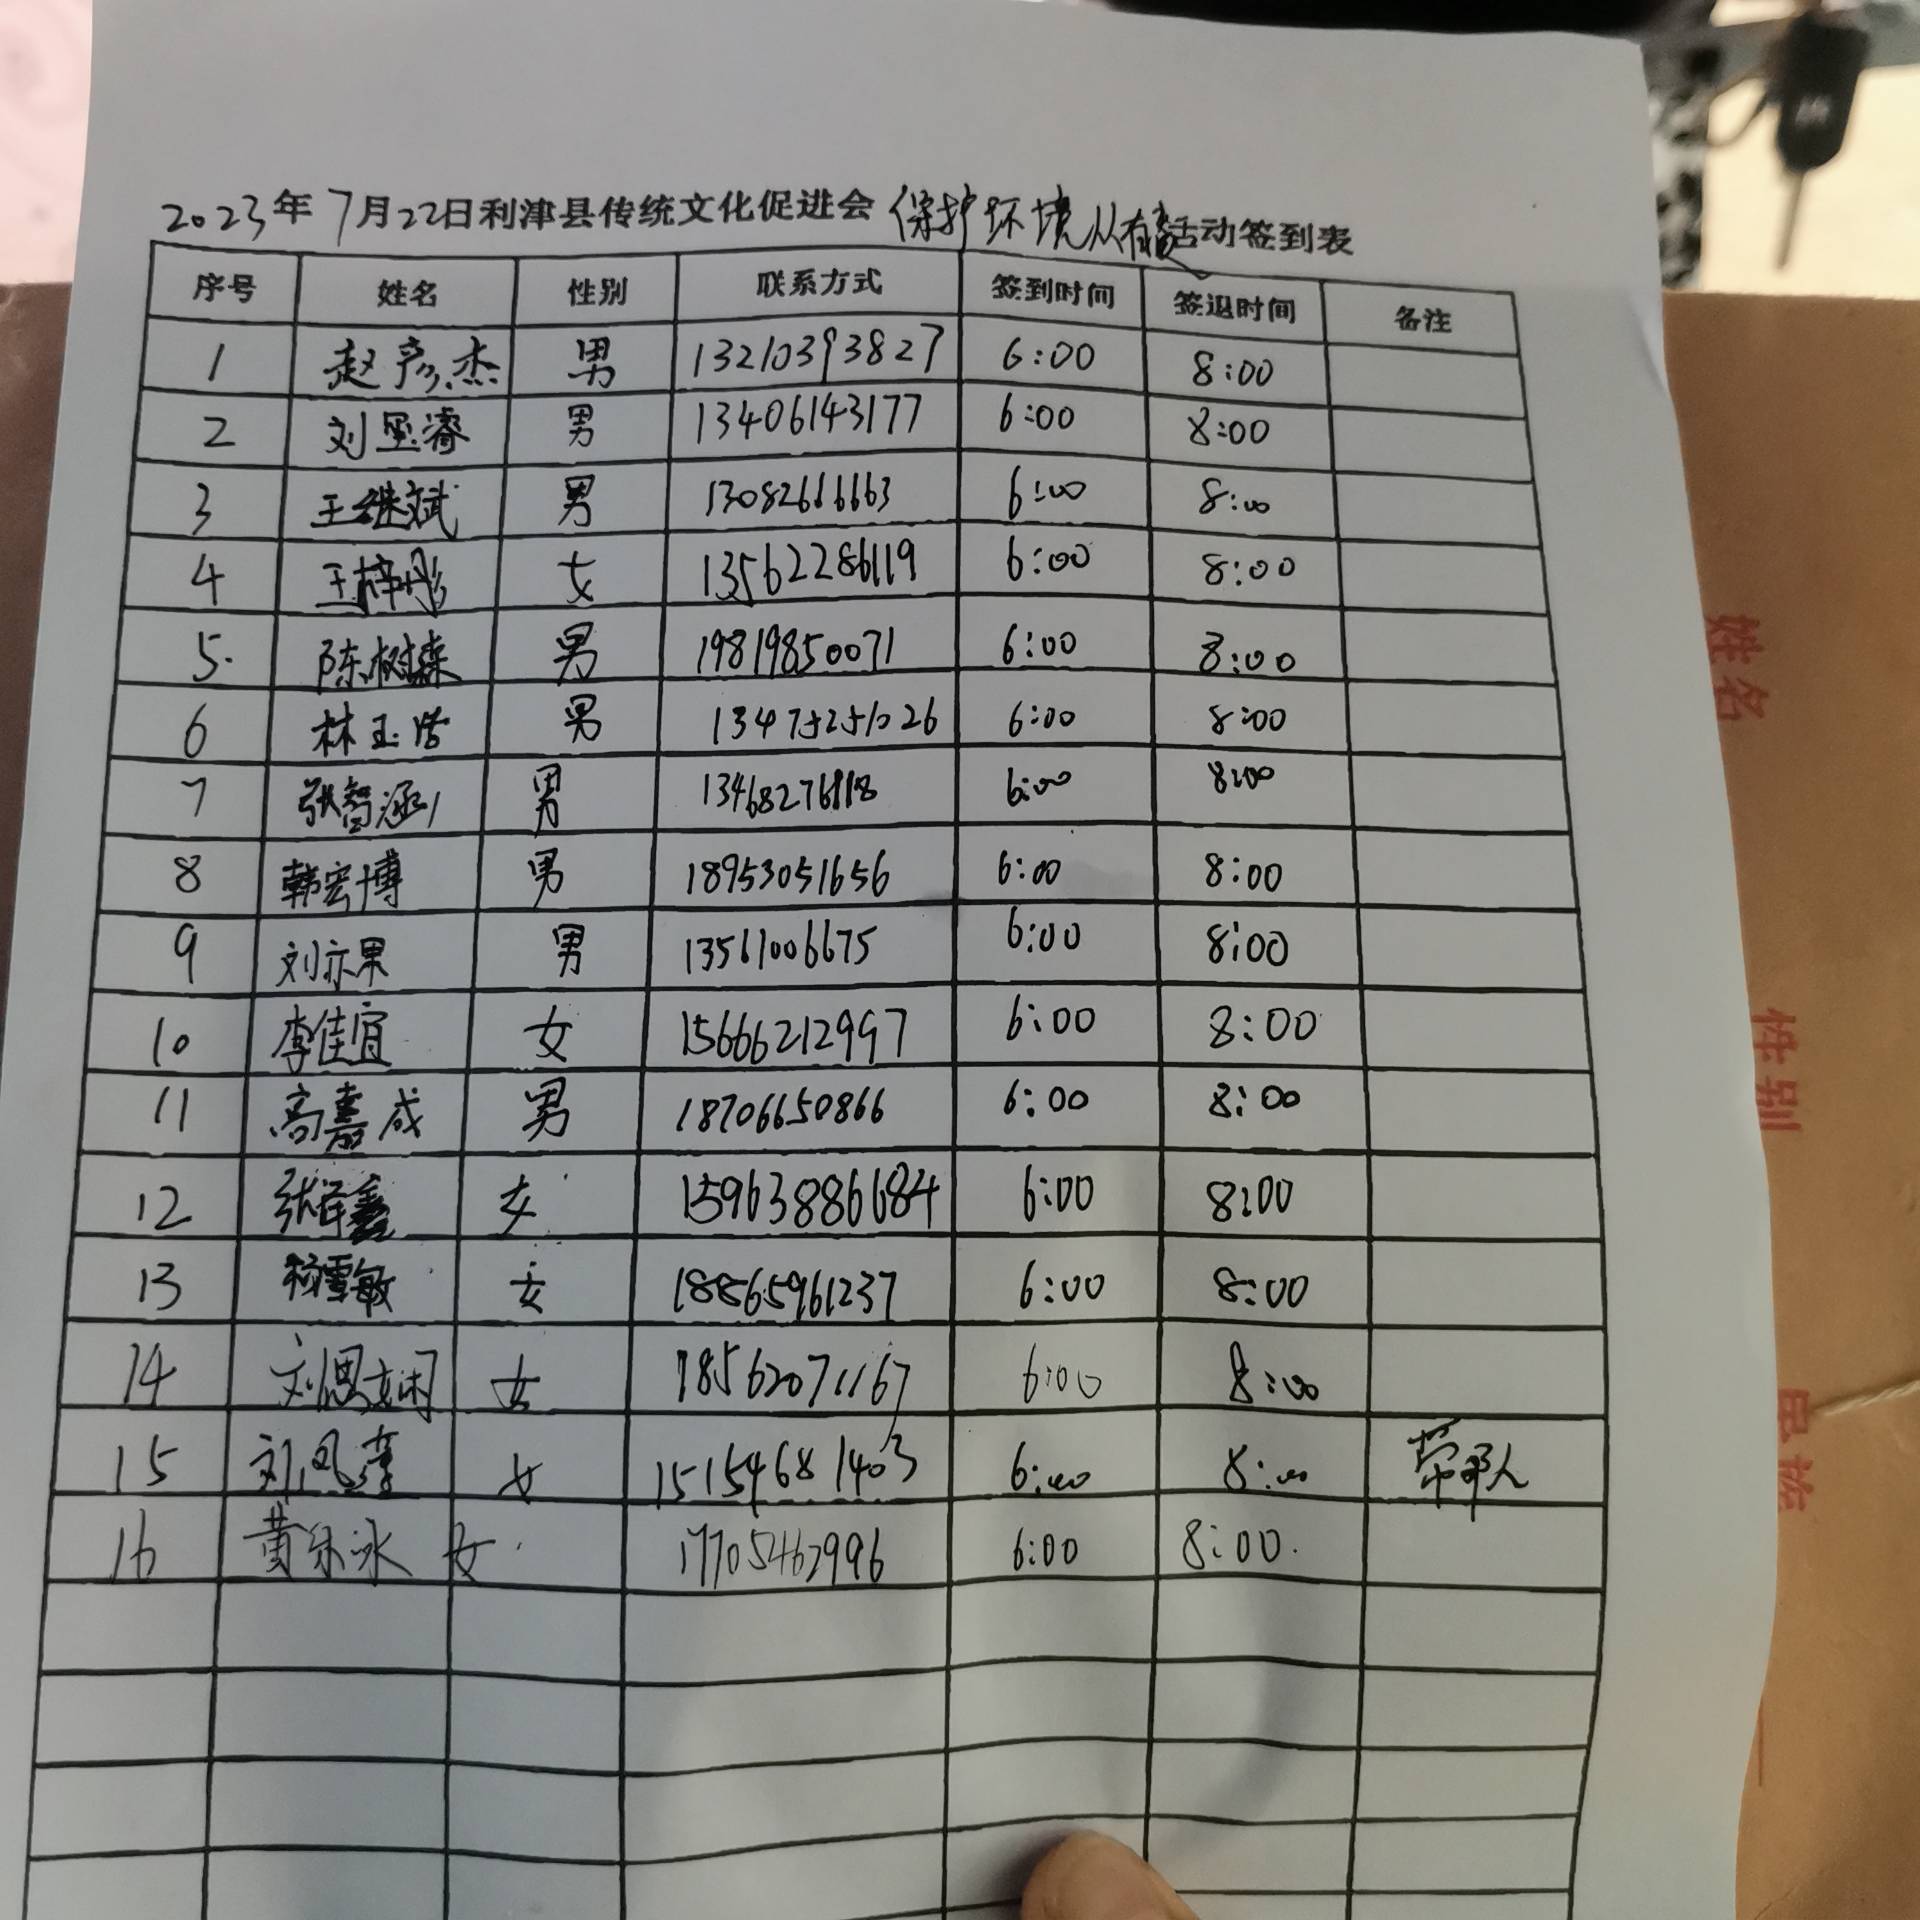 2023年7月22日利津县传统文化促进会 保护环境从有我活动签到表
序号 姓名 性别 联系方式 签到时间 签退时间 备注
1 赵彦杰 男 13210393827 6:00 8:00
2 刘显睿 男 13406143177 6:00 8:00
3 王继斌 男 13082666663 6:00 8:00
4 王梓彤 女 13562286119 6:00 8:00
5. 陈树森 男 19819850071 6:00 8:00
6 林玉浩 男 13475251026 6:00 8:00
7 张智涵 男 6:00 8:00
8 韩宏博 男 18953051656 6:00 8:00
9 刘亦果 男 13561006675 6:00 8:00
10 李佳宜 女 15666212997 6:00 8:00
11 高嘉成 男 18706650866 6:00 8:00
12 张泽鑫 女 15963886684 6:00 8:00
13 杨雪敏 女 18865961237 6:00 8:00
14 刘思娴 女 18562071167 6:00 8:00
15 刘凤 女 15154681403 6:00 8:00 带队人
16 黄乐冰 女 17705462996 6:00 8:00
姓名
性别
民族